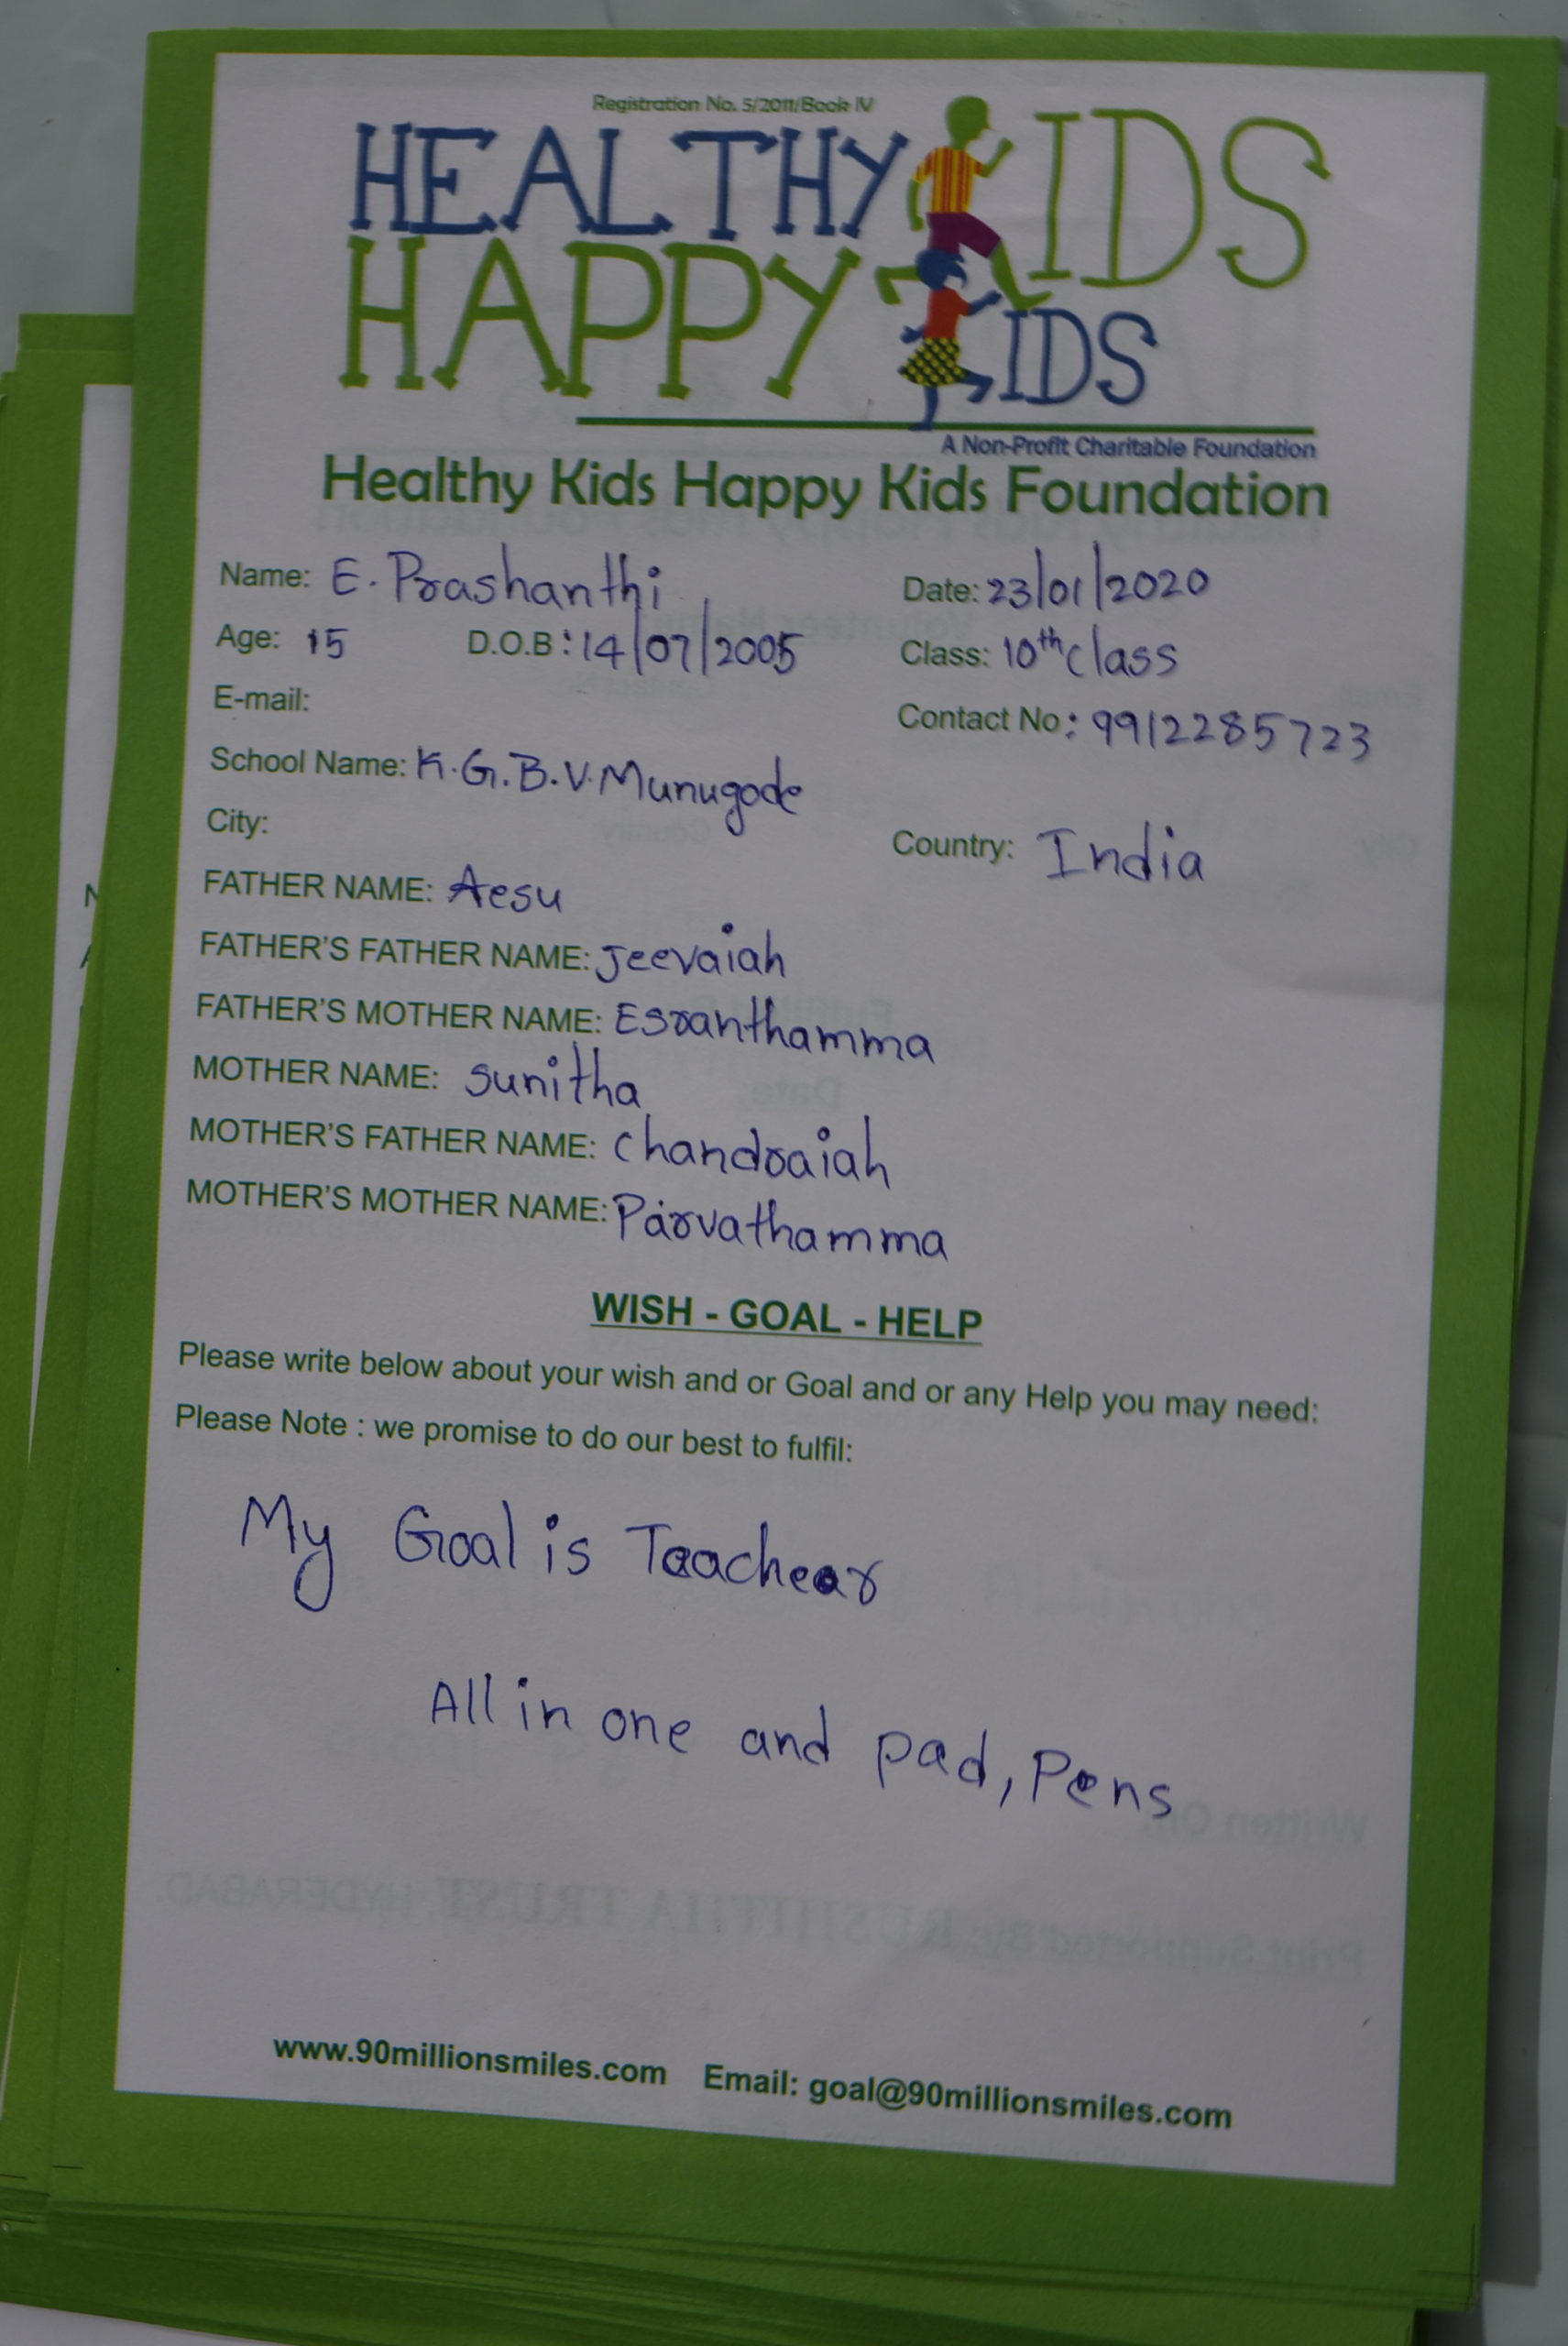 Registration No. 5/2011/Book IV
HEALTHY KIDS
HAPPY KIDS
A Non-Profit Charitable Foundation
Healthy Kids Happy Kids Foundation
Name: E. Prashanthi Date: 23/01/2020
Age: 15 D.O.B : 14/07/2005 Class: 10th class
E-mail: Contact No : 9912285723
School Name: K.G.B.V. Munugode
City: Country: India
FATHER NAME: Aesu
FATHER'S FATHER NAME: Jeevaiah
FATHER'S MOTHER NAME: Esranthamma
MOTHER NAME: Sunitha
MOTHER'S FATHER NAME: Chandraiah
MOTHER'S MOTHER NAME: Parvathamma
WISH - GOAL - HELP
Please write below about your wish and or Goal and or any Help you may need:
Please Note : we promise to do our best to fulfil:
My Goal is Taachear
All in one and pad, Pens
www.90millionsmiles.com Email: goal@90millionsmiles.com